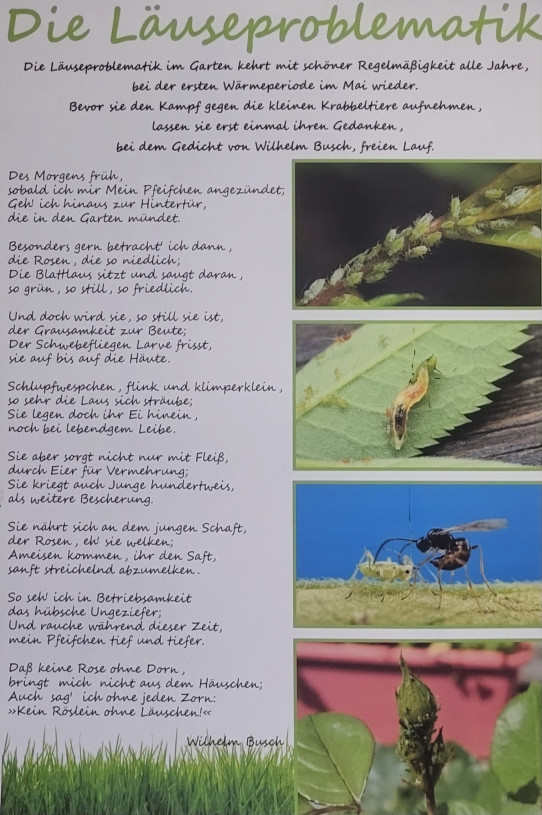 Die Läuseproblematik
Die Läuseproblematik im Garten kehrt mit schöner Regelmäßigkeit alle Jahre,
bei der ersten Wärmeperiode im Mai wieder.
Bevor sie den Kampf gegen die kleinen Krabbeltiere aufnehmen,
lassen sie erst einmal ihren Gedanken,
bei dem Gedicht von Wilhelm Busch, freien Lauf.
Des Morgens früh,
sobald ich mir Mein Pfeifchen angezündet,
Geh' ich hinaus zur Hintertür,
die in den Garten mündet.
Besonders gern betracht' ich dann,
die Rosen, die so niedlich;
Die Blattlaus sitzt und saugt daran,
so grün, so still, so friedlich.
Und doch wird sie, so still sie ist,
der Grausamkeit zur Beute;
Der Schwebefliegen Larve frisst,
sie auf bis auf die Häute.
Schlupfwespchen, flink und klimperklein,
so sehr die Laus sich sträube;
Sie legen doch ihr Ei hinein,
noch bei lebendgem Leibe.
Sie aber sorgt nicht nur mit Fleiß,
durch Eier für Vermehrung;
Sie kriegt auch Junge hundertweis,
als weitere Bescherung.
Sie nährt sich an dem jungen Schaft,
der Rosen, eh' sie welken;
Ameisen kommen, ihr den Saft,
sanft streichelnd abzumelken.
So seh' ich in Betriebsamkeit
das hübsche Ungeziefer;
Und rauche während dieser Zeit,
mein Pfeifchen tief und tiefer.
Daß keine Rose ohne Dorn,
bringt mich nicht aus dem Häuschen;
Auch sag' ich ohne jeden Zorn:
»Kein Röslein ohne Läuschen!«
Wilhelm Busch